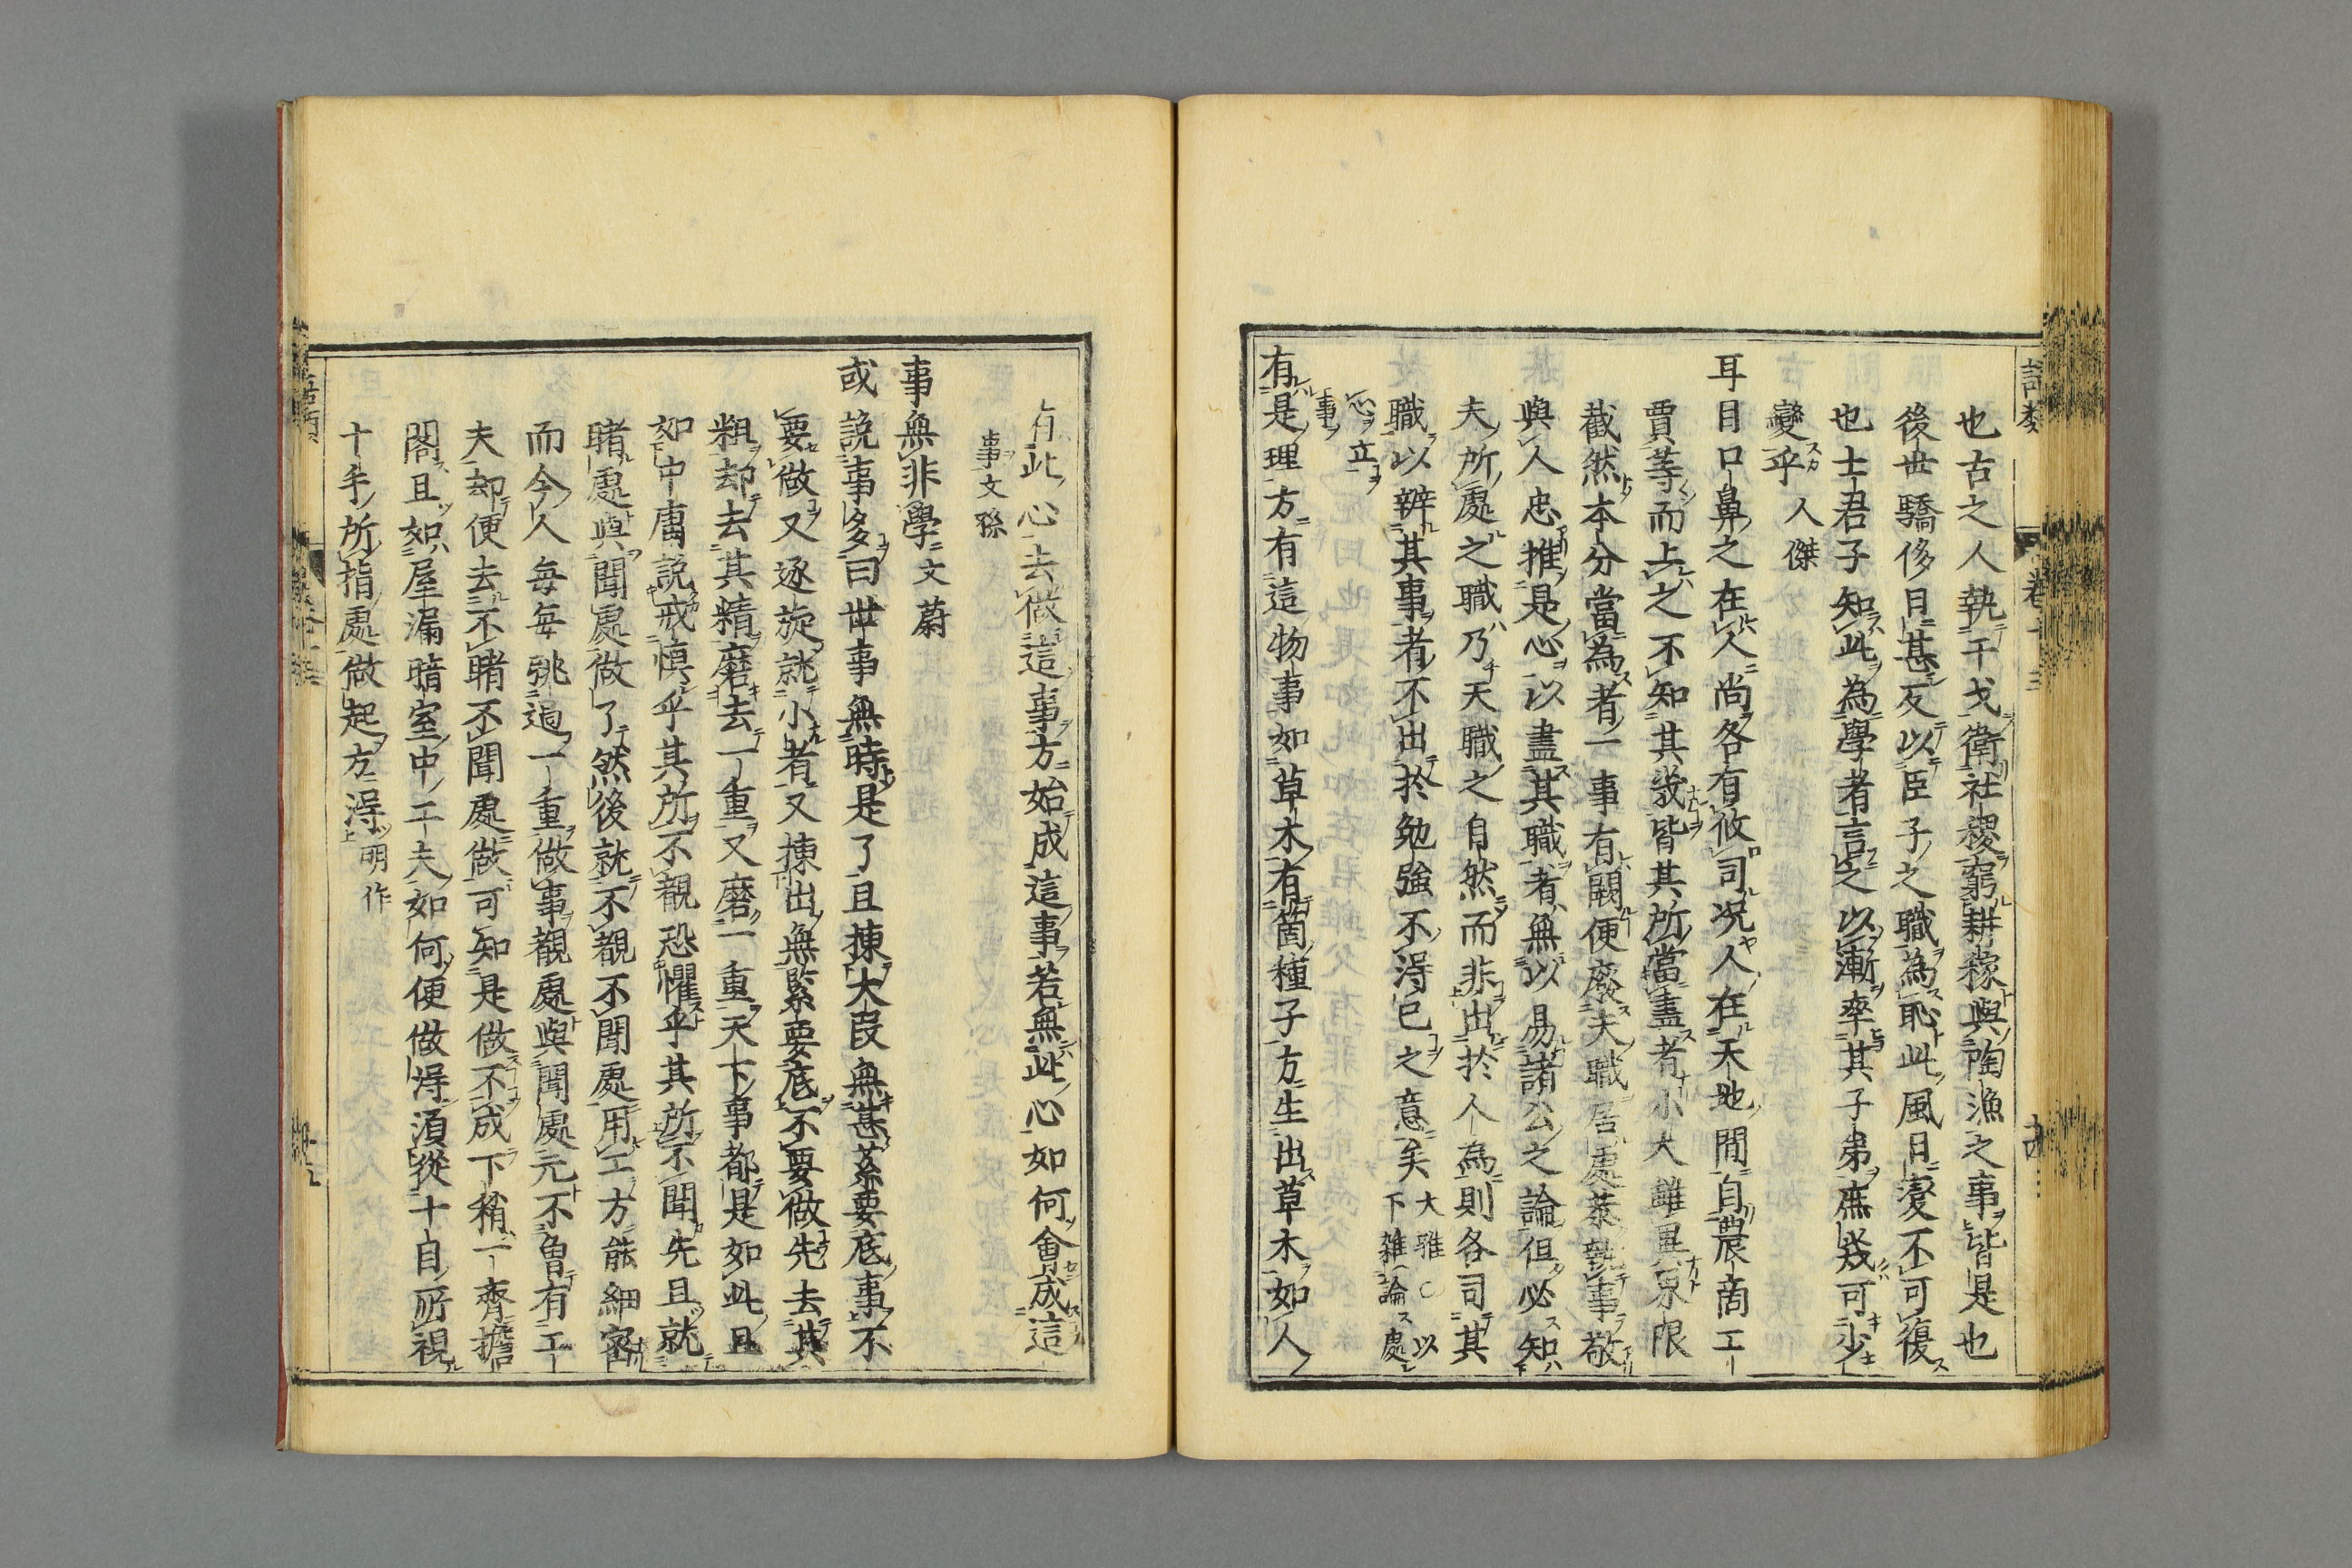 也古之人執干戈衛社稷窮耕稼與陶漁之事皆是也
後世驕侈日甚反以臣子之職為恥此風日變不可復
也士君子知此為學者言之以漸率其子弟庶幾可少
變乎 人傑
耳目口鼻之在人尚各有攸司况人在天地間自農商工
賈等而上之不知其幾皆其所當盡者小大雖異界限
截然本分當為者一事有闕便廢天職居處恭執事敬
與人忠推是心以盡其職者無以易諸公之論但必知
夫所處之職乃天職之自然而非出於人為則各司其
職以辨其事者不出於勉強不得已之意矣 大雅〇以
下雜論處
心立
事
有是理方有這物事如草木有箇種子方生出草木如人
有此心去做這事方始成這事若無此心如何會成這
事 文
事無非學 文蔚
或說事多曰世事無時是了且揀大段無甚緊要底事不
要做又逐旋就小者又揀出無緊要底不要做先去其
粗却去其精磨去一重又磨一重天下事都是如此且
如中庸說戒慎乎其所不覩恐懼乎其所不聞先且就
睹處與聞處做了然後就不覩不聞處用工方能細密
而今人每每跳過一重做事覩處與聞處元不曾有工
夫却便去不睹不聞處做可知是做不成下稍一齊擔
閣且如屋漏暗室中工夫如何便做得須從十目所視
十手所指處做起方得 明作